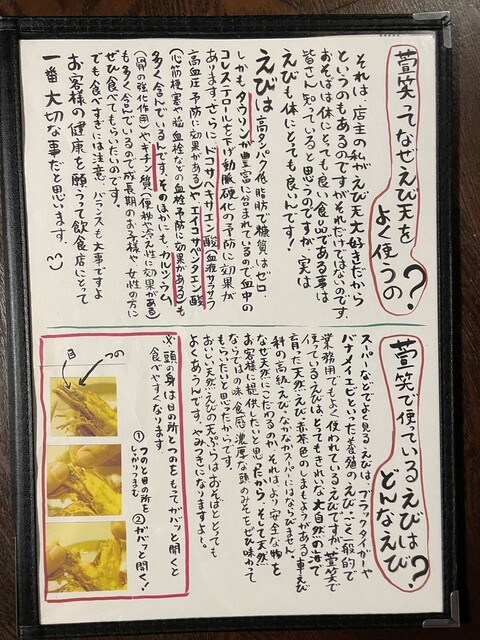 萱笑ってなぜえび天を
よく使うの?
それは、店主の私がえび天大好きだから
というのもあるのですがそれだけではないのです。
おそばは体にとても良い食品である事は
皆さん知っていると思うのですが、実は
えびも体にとても良いんです!
えびは高タンパク低脂肪で糖質はゼロ。
しかも、タウリンが豊富に含まれているので血中の
コレステロールを下げ動脈硬化の予防に効果が
あります。さらにドコサヘキサエン酸(血液サラサラ
高血圧予防に効果がある)やエイコサペンタエン酸
(心筋梗塞や脳血栓などの血栓予防に効果がある)も
多く含んでいるんです。そのほかにも、カルシウム
(骨の強化作用)や、キチン質(便秘や冷え性に効果がある)
も多く含んでいるので成長期のお子様や女性の方に
ぜひ食べてもらいたいのです。
でも食べすぎには注意。バランスも大事ですよ
お客様の健康を願うって飲食店にとって
一番大切な事だと思います。
萱笑で使っているえびは
どんなえび?
スーパーなどでよく見るえびは、ブラックタイガーや
バナメイエビといった養殖のえび。ごく一般的で
業務用でもよく使われているえびですが、萱笑で
使っているえびは、とってもきれいな大自然の海で
育った天然えび。赤茶色のしまもようがある車えび
科の高級えび。なかなかスーパーにはならびません。
なぜ天然にこだわるのか、それは、より安全な物を
お客様に提供したいと思ったから。そして天然
ならではの味、食感、濃厚な頭のみそをぜひ味わって
もらいたいと思ったからです。
おいしい天然えびの天ぷらはおそばととっても
よくあうんです。やみつきになりますよ。
※頭の身は目の所とつのをもってガバッと開くと
食べやすくなります
つの
目
①つのと目の所を
しっかりつまむ
②ガバッと開く!